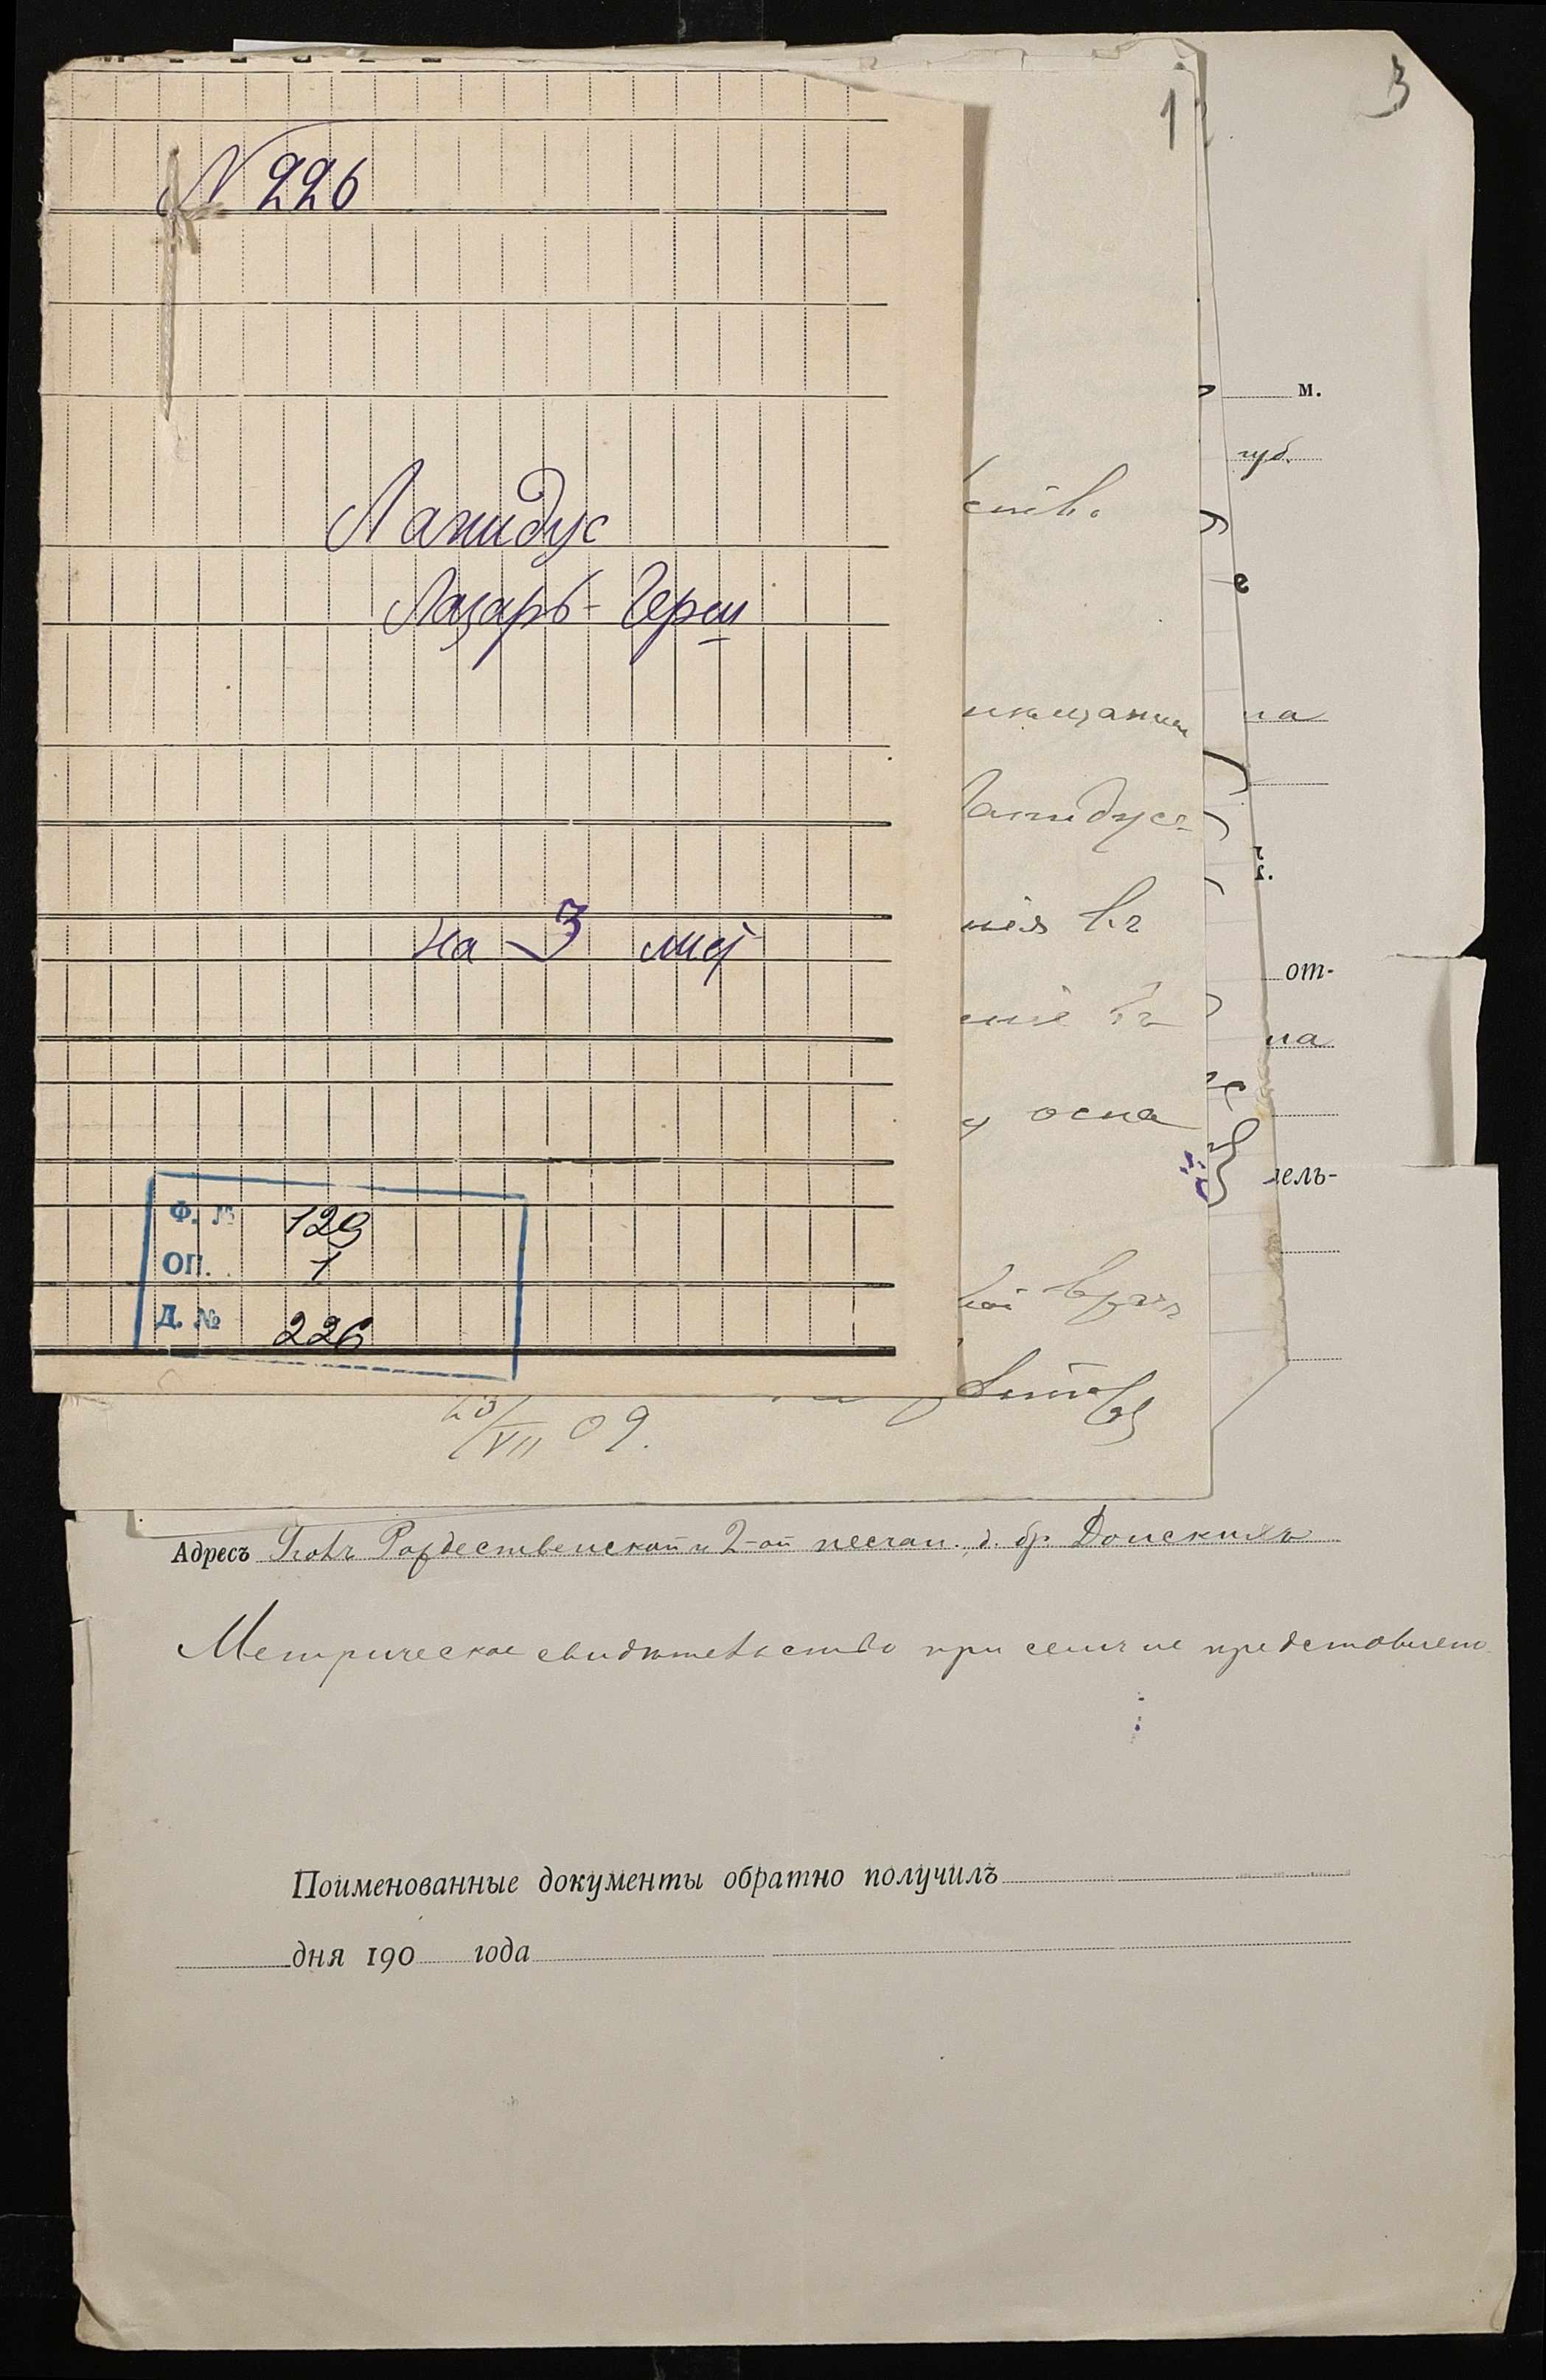 N 226
Лапидус
Лазарь-Герш
на 3 лист
Ф. № 129
ОП. 1
Д. № 226
1
3
м.
губ.
Лапидусъ
нія въ
от-
оспа
тель-
врачъ
23/VII 09.
Адресъ Уголъ Рождественской и 2-ой песчан. д. бр. Донскихъ
Метрическое свидѣтельство при семъ не представлено
Поименованные документы обратно получилъ
дня 190 года